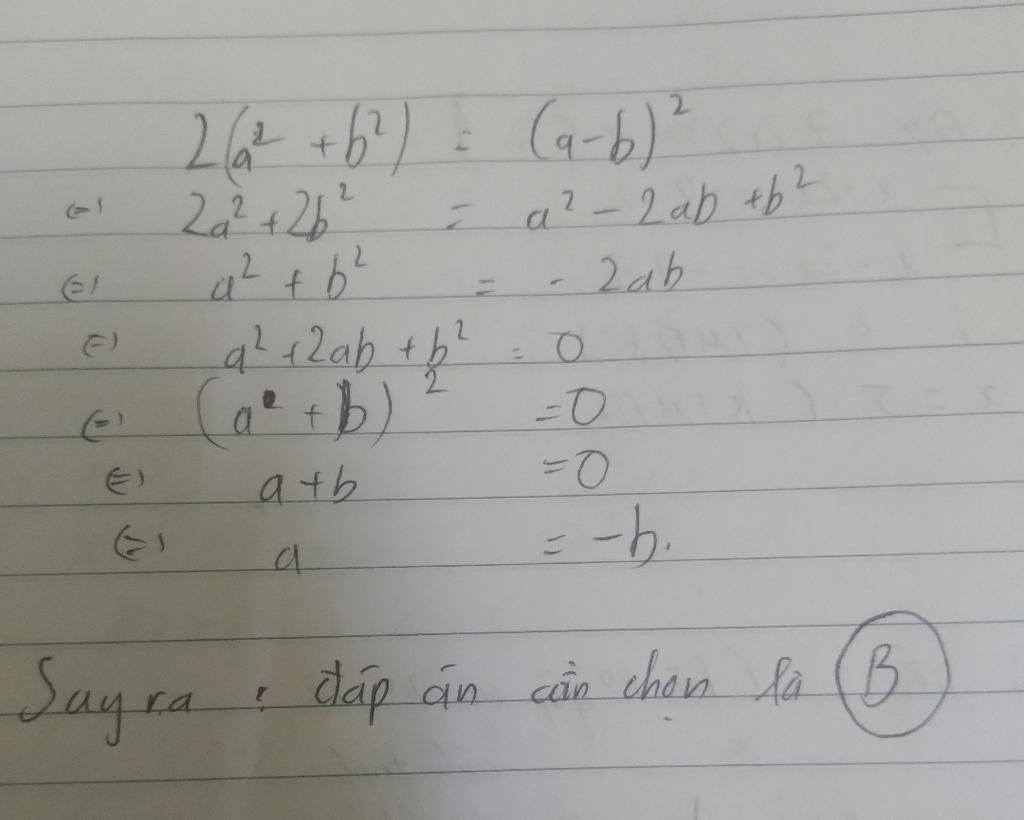 2(a² + b²) = (a-b)²
⇔ 2a² + 2b² = a² - 2ab + b²
⇔ a² + b² = - 2ab
⇔ a² + 2ab + b² = 0
⇔ (a + b)² = 0
⇔ a + b = 0
⇔ a = -b.
Suy ra : đáp án cần chọn là B